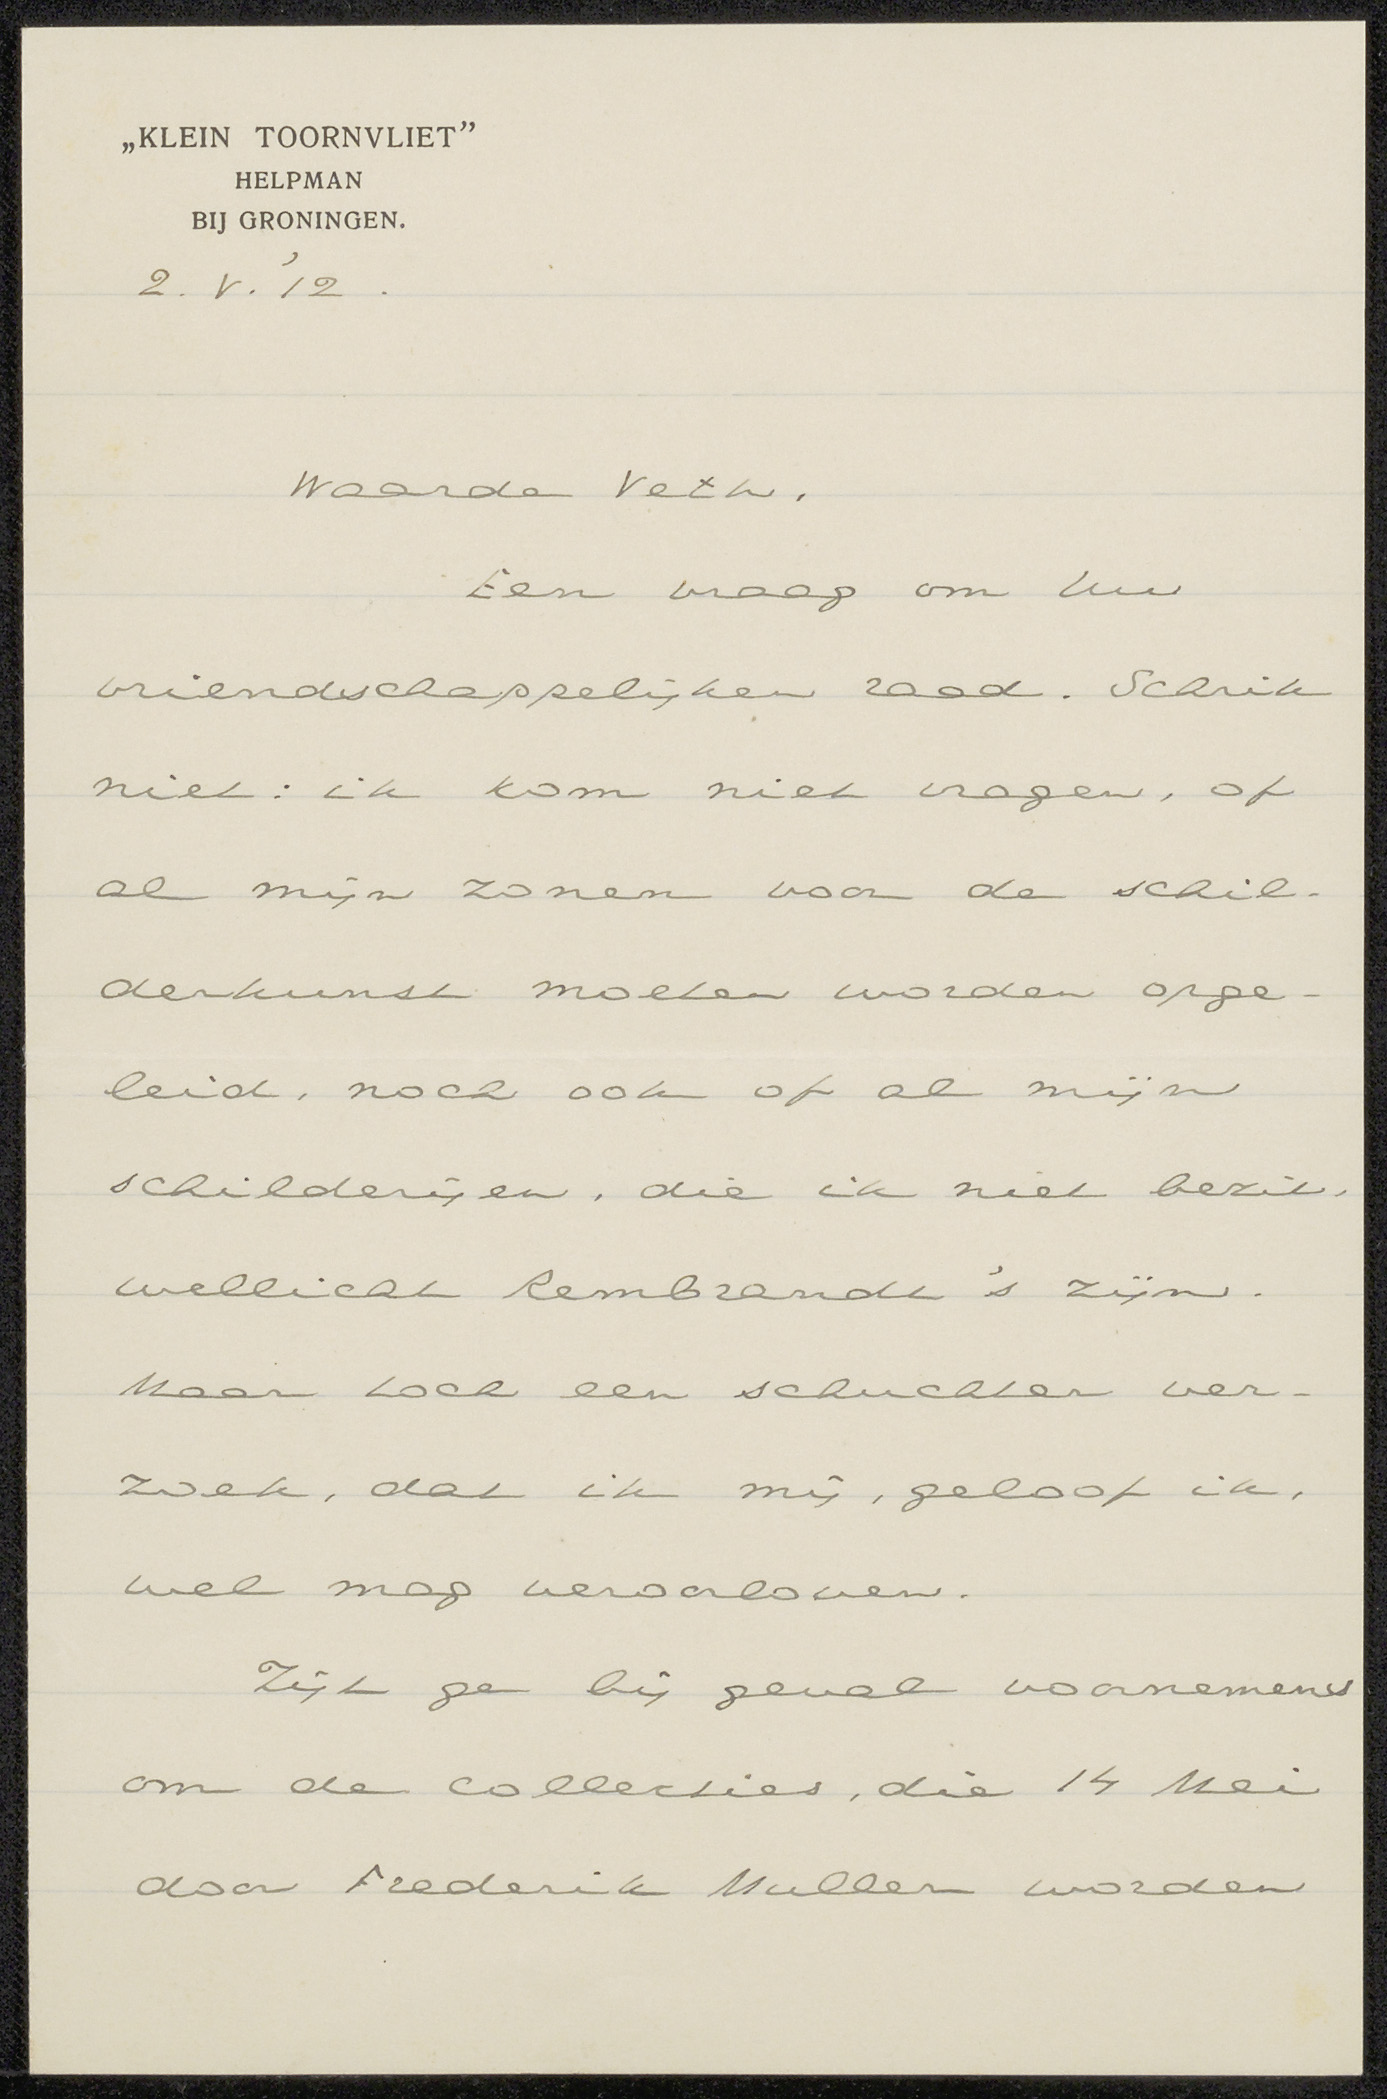 „KLEIN TOORNVLIET”
HELPMAN
BIJ GRONINGEN.
2. V. '12.
Waarde Veth,
Een vraag om Uw
vriendschappelijken raad. Schrik
niet: ik kom niet vragen, of
al mijn zonen voor de schil-
derkunst moeten worden opge-
leid, noch ook of al mijn
schilderijen, die ik niet bezit,
wellicht Rembrandt's zijn.
Maar toch een schuchter ver-
zoek, dat ik mij, geloof ik,
wel mag veroorloven.
Zijt ge bij geval voornemens
om de collecties, die 14 Mei
door Frederik Muller worden